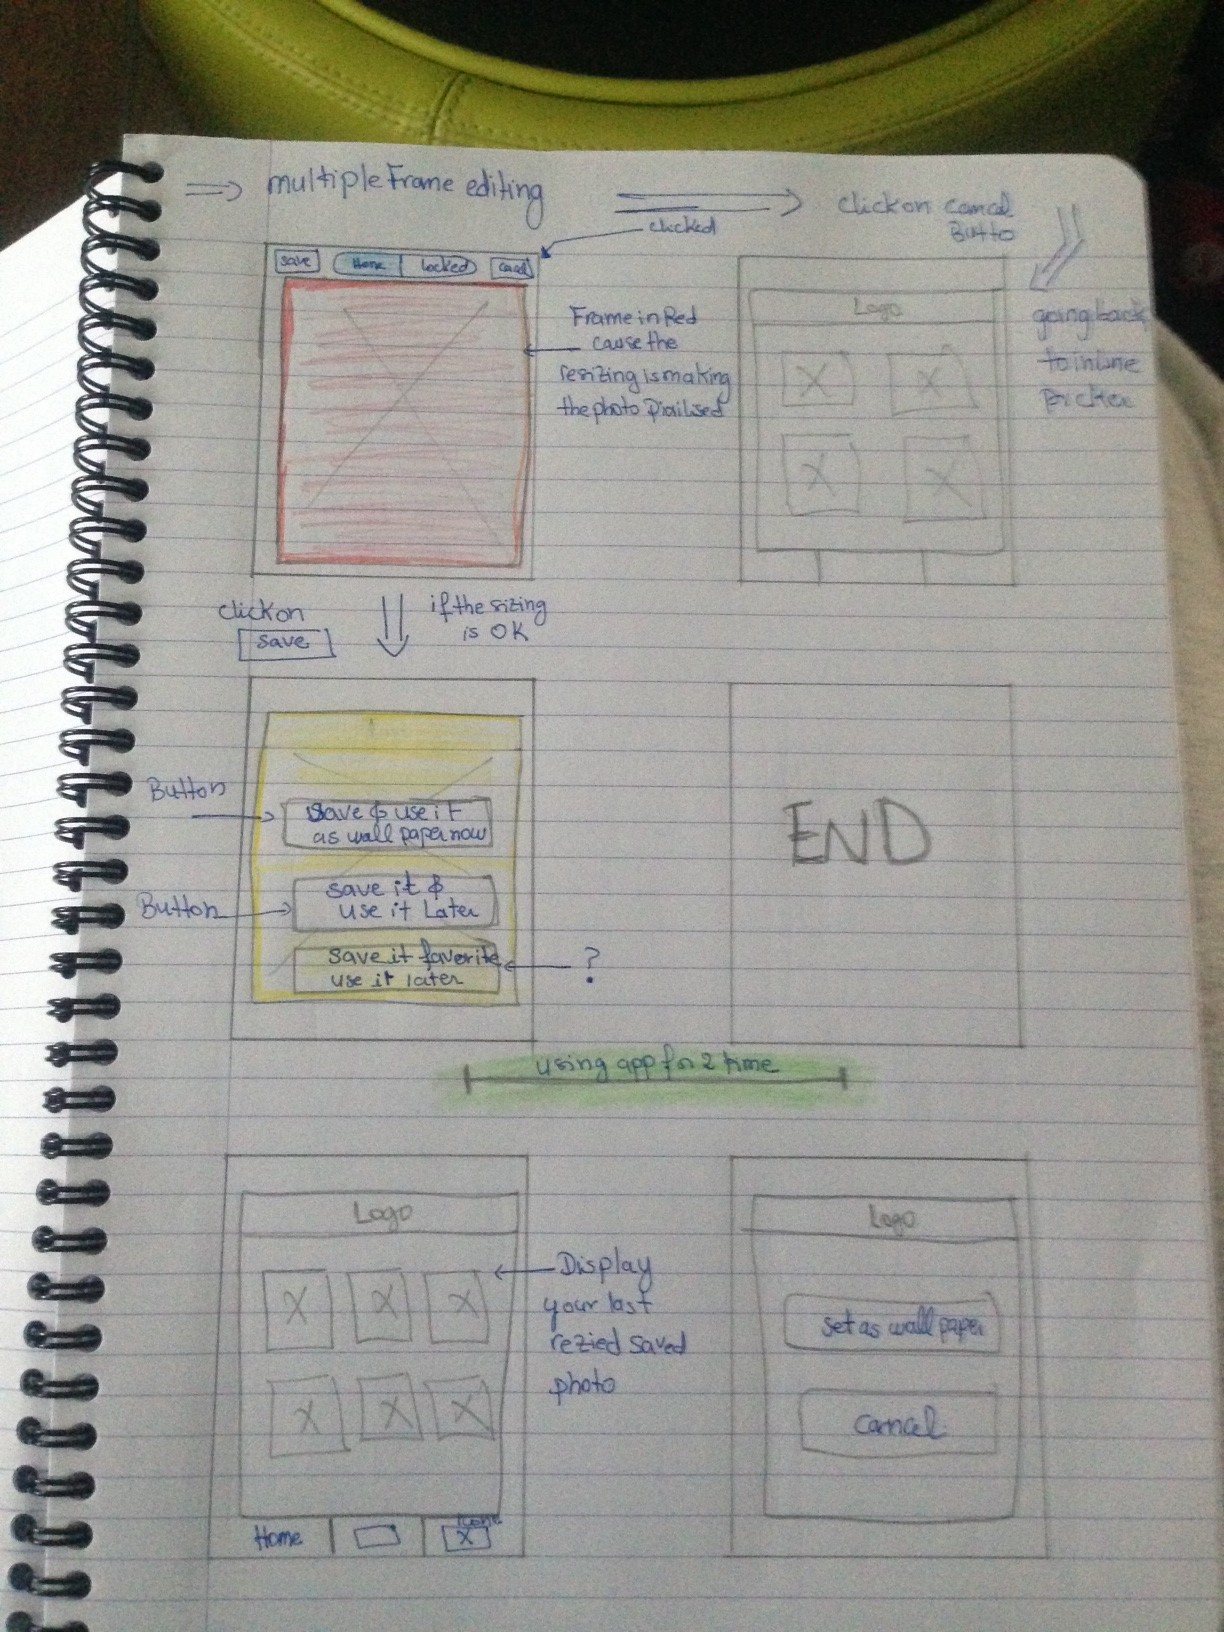 multiple Frame editing
clicked
click on cancal
Butto
save
Home
Locked
Frame in Red
cause the
resizing is making
the photo
Logo
going back
to inline
picker
click on
save
if the sizing
is OK
Button
Save & use it
as wall paper now
Button
save it &
use it Later
save it favorite
use it later
?
END
using app for 2 time
Logo
Display
your last
rezied saved
photo
Home
icone
Logo
set as wall paper
cancal